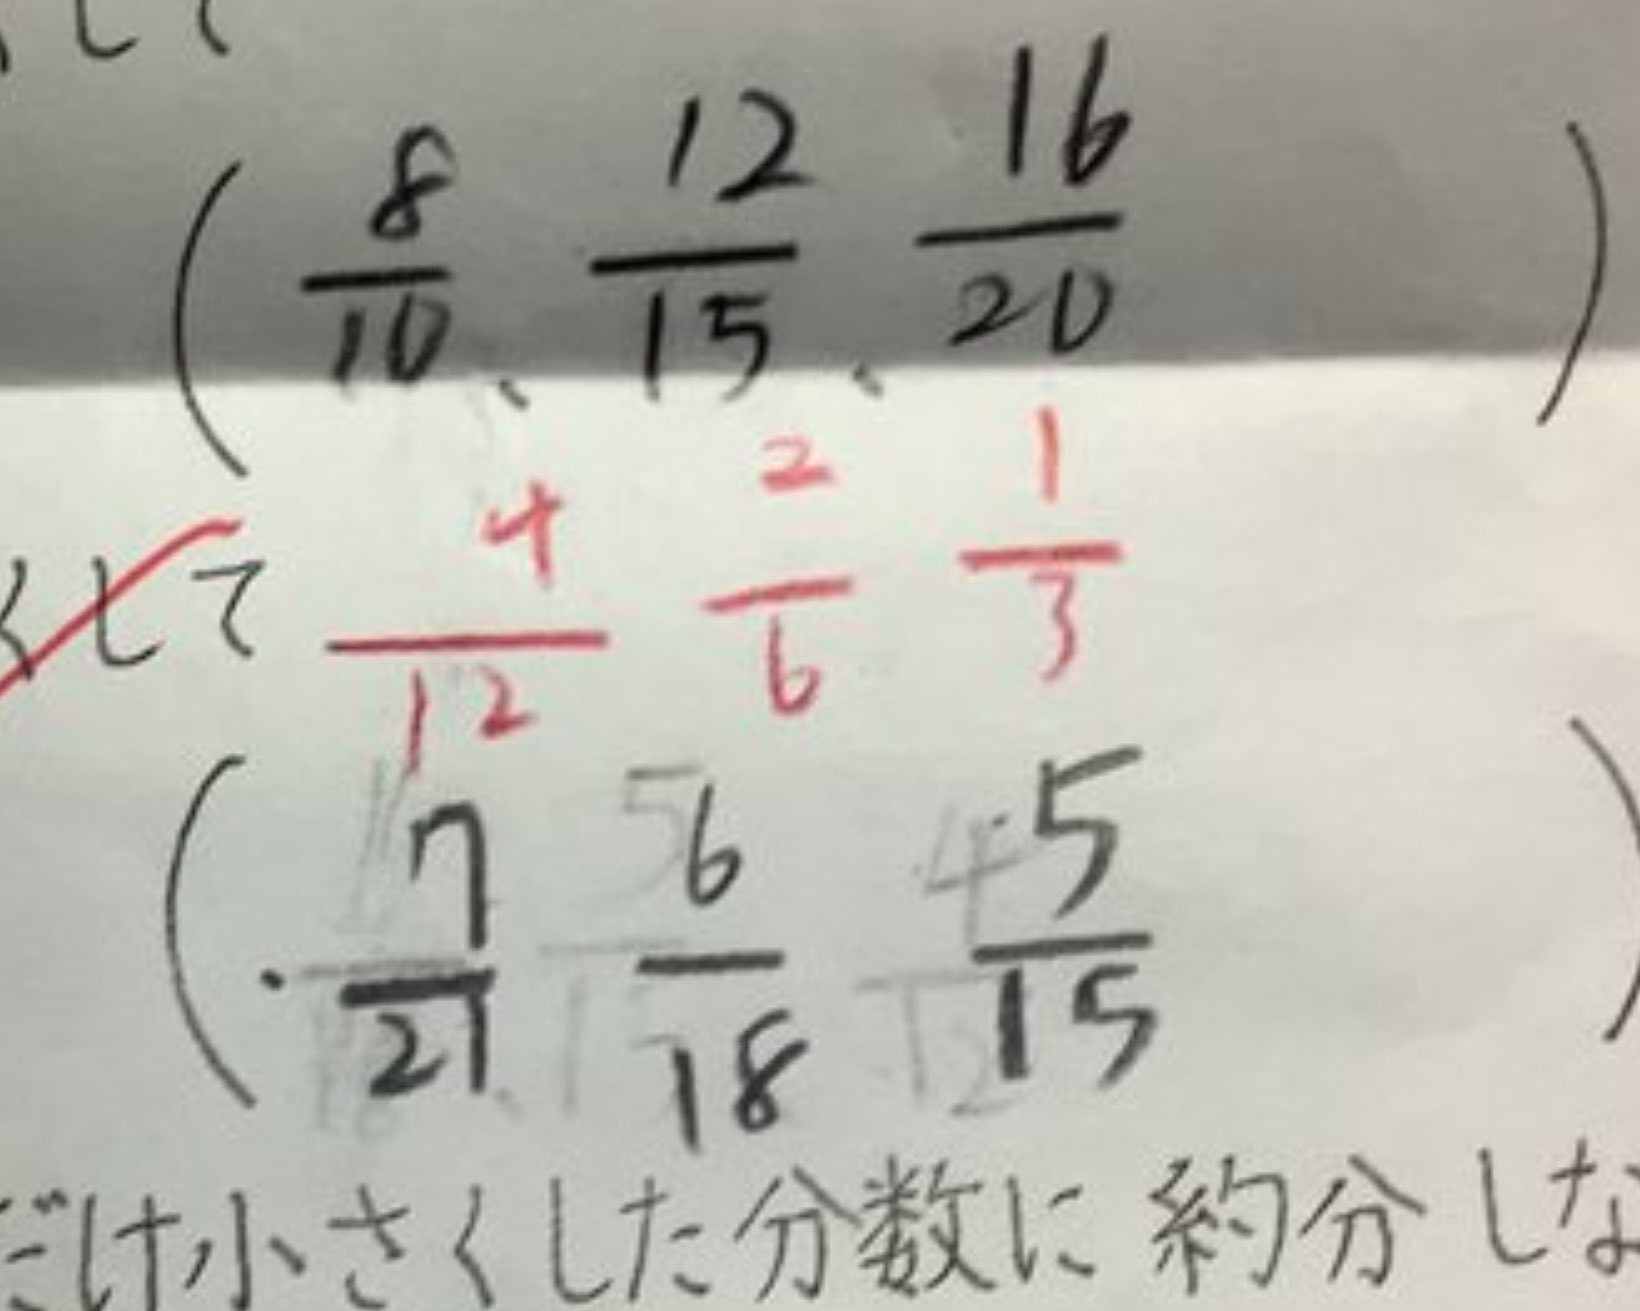 して
( 8/10、 12/15、 16/20 )
くして 4/12 2/6 1/3
( 7/21 6/18 5/15 )
だけ小さくした分数に約分しな